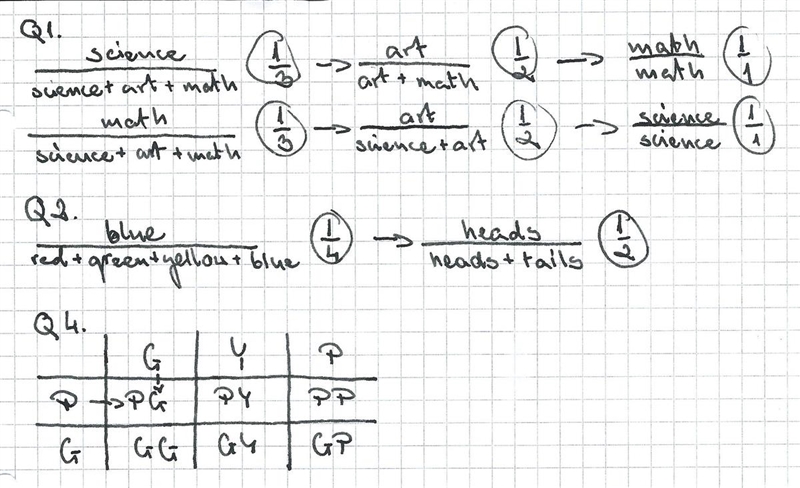 Q1.
science / science + art + math (1/3) → art / art + math (1/2) → math / math (1/1)
math / science + art + math (1/3) → art / science + art (1/2) → science / science (1/1)
Q2.
blue / red + green + yellow + blue (1/4) → heads / heads + tails (1/2)
Q4.
G Y P
P → PG PY PP
G GG GY GP